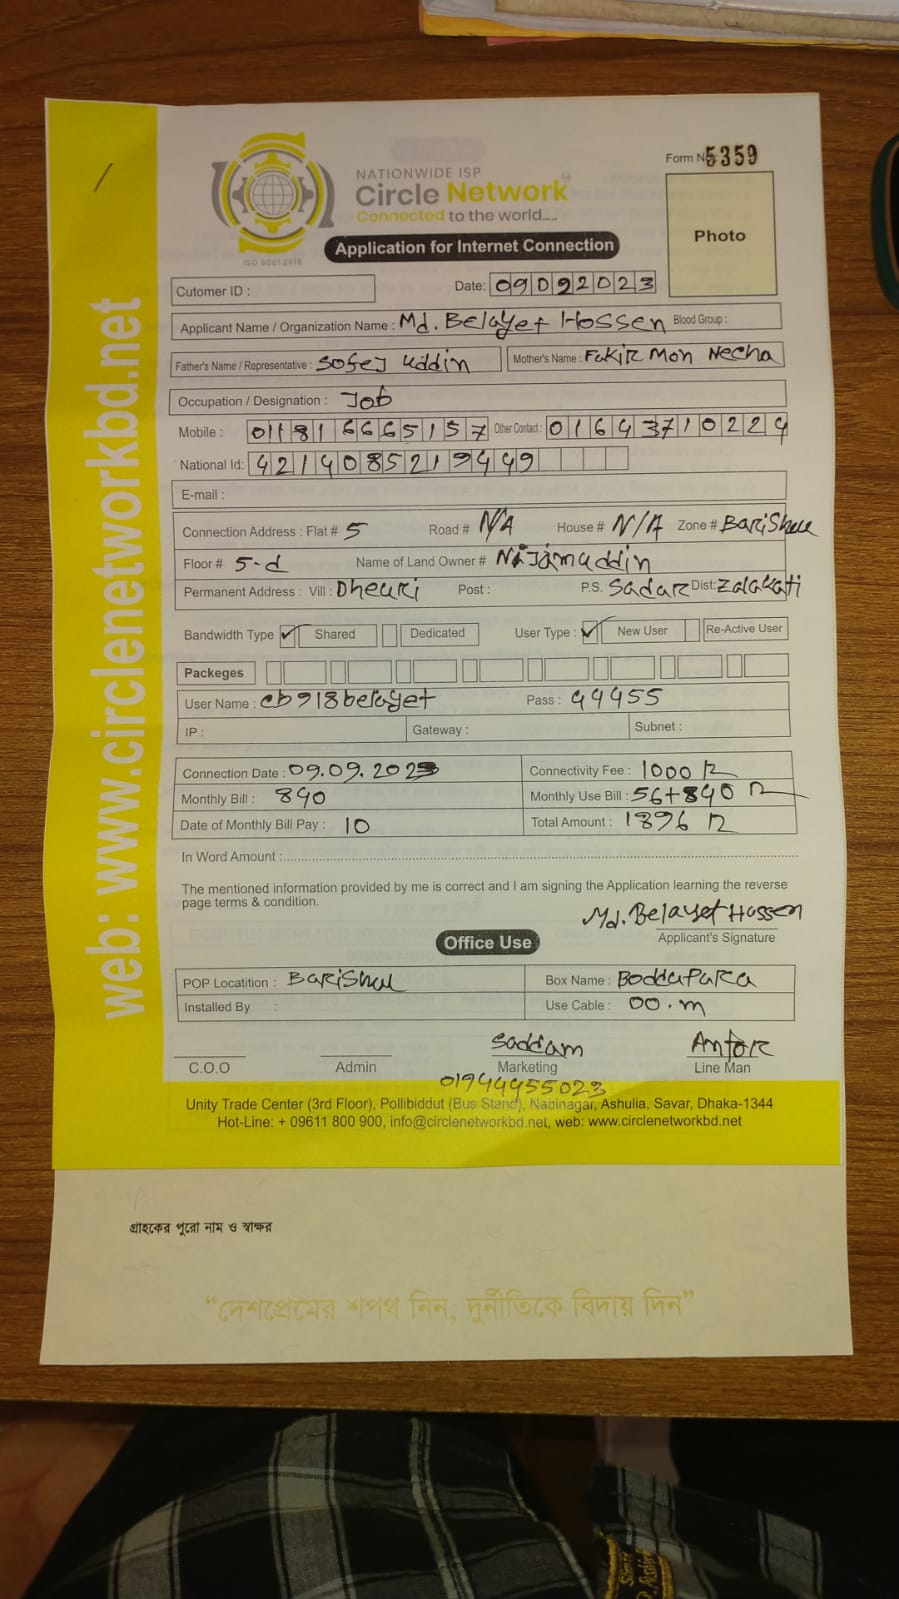 Form No 5359
NATIONWIDE ISP
Circle Network
Connected to the world.....
ISO 9001:2015
Application for Internet Connection
Photo
web: www.circlenetworkbd.net
Cutomer ID :
Date: 09092023
Applicant Name / Organization Name : Md. Belayet Hossen Blood Group :
Father's Name / Representative : Sofej Uddin Mother's Name : Fokir Mon Necha
Occupation / Designation : Job
Mobile : 011816665157 Other Contact : 01643710224
National Id: 4214085219449
E-mail :
Connection Address : Flat # 5 Road # N/A House # N/A Zone # BariShal
Floor # 5-d Name of Land Owner # Nijamuddin
Permanent Address : Vill : Dheuri Post : P.S. Sadar Dist: Zalakati
Bandwidth Type ✓ Shared Dedicated User Type : ✓ New User Re-Active User
Packeges
User Name : cb918belayet Pass : 44455
IP : Gateway : Subnet :
Connection Date : 09.09.2023 Connectivity Fee : 1000
Monthly Bill : 840 Monthly Use Bill : 56+840
Date of Monthly Bill Pay : 10 Total Amount : 1896
In Word Amount :
The mentioned information provided by me is correct and I am signing the Application learning the reverse
page terms & condition.
Md. Belayet Hossen
Applicant's Signature
Office Use
POP Locatition : BariShal Box Name : Boddapara
Installed By : Use Cable : 00.m
Saddam
C.O.O Admin Marketing Line Man
01944455023
Unity Trade Center (3rd Floor), Pollibiddut (Bus Stand), Nabinagar, Ashulia, Savar, Dhaka-1344
Hot-Line: + 09611 800 900, info@circlenetworkbd.net, web: www.circlenetworkbd.net
গ্রাহকের পুরো নাম ও স্বাক্ষর
“দেশপ্রেমের শপথ নিন, দুর্নীতিকে বিদায় দিন”